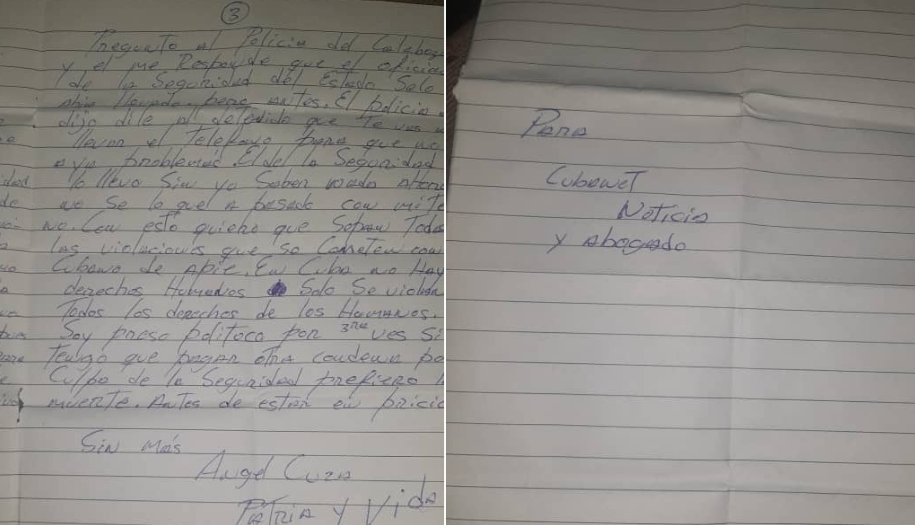 3
Pregunto al Policia del Calaboz
y el me Responde que el oficia
de la Seguridad del Estado Solo
abia llevado antes. El policia
dijo dile al detenido que te
llevar el Telefono para que no
aya problemas. El de la Seguridad
lo llevo Sin yo Saber nada Ahora
no se lo que a pasado con mi te
no. Con esto quiero que Sepan Toda
Las violaciones que se Cometen con
Cubano de Apie. En Cuba no Hay
derechos Humanos Solo Se violan
Todos los derechos de los Humanos.
Soy preso politoco por 3RA ves Si
Tengo que pagar otra condena po
Culpa de la Seguridad prefiero l
muerte. Antes de estar en pricio
Sin más
Angel Cuza
PATRIA y Vida
idad
de
Para
Cubanet
Noticia
y abogado